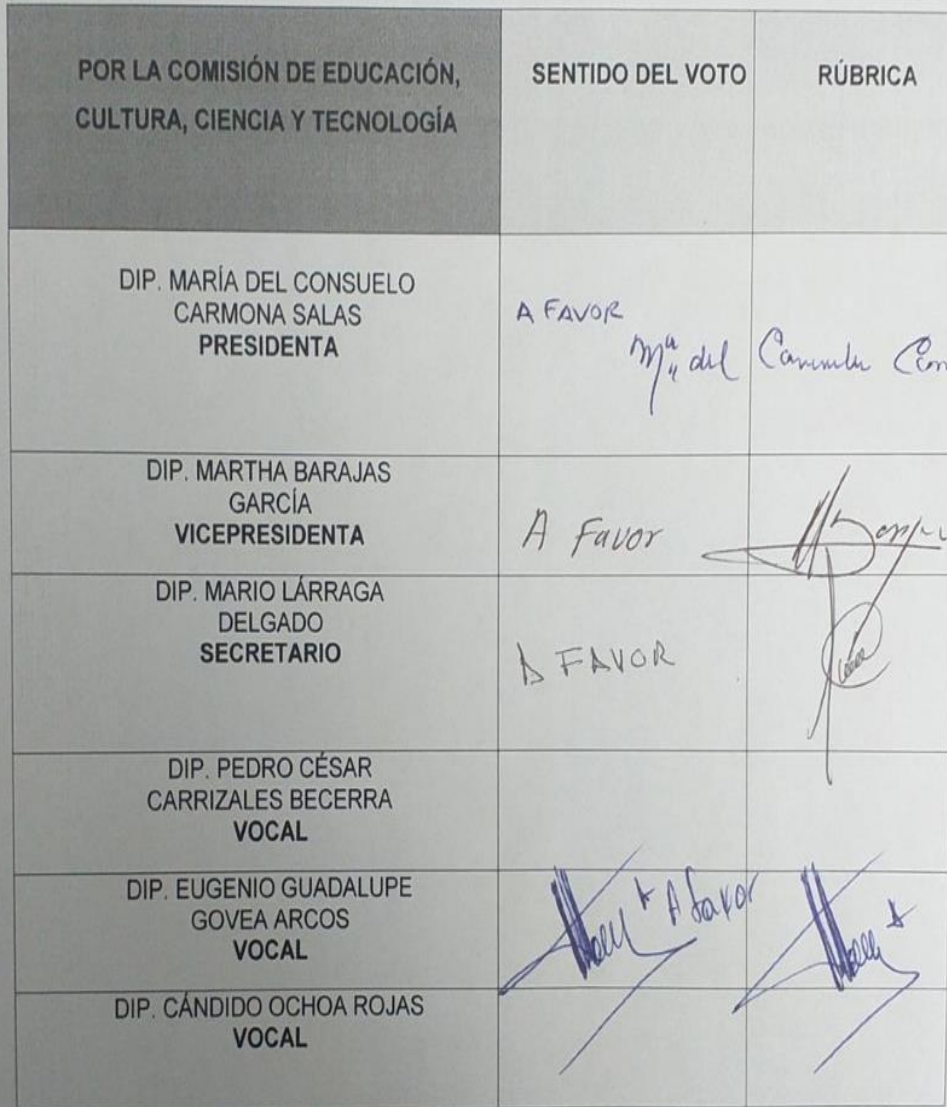 POR LA COMISIÓN DE EDUCACIÓN,
CULTURA, CIENCIA Y TECNOLOGÍA
SENTIDO DEL VOTO
RÚBRICA
DIP. MARÍA DEL CONSUELO
CARMONA SALAS
PRESIDENTA
A FAVOR
Mª del
DIP. MARTHA BARAJAS
GARCÍA
VICEPRESIDENTA
A Favor
DIP. MARIO LÁRRAGA
DELGADO
SECRETARIO
A FAVOR
DIP. PEDRO CÉSAR
CARRIZALES BECERRA
VOCAL
DIP. EUGENIO GUADALUPE
GOVEA ARCOS
VOCAL
A favor
DIP. CÁNDIDO OCHOA ROJAS
VOCAL